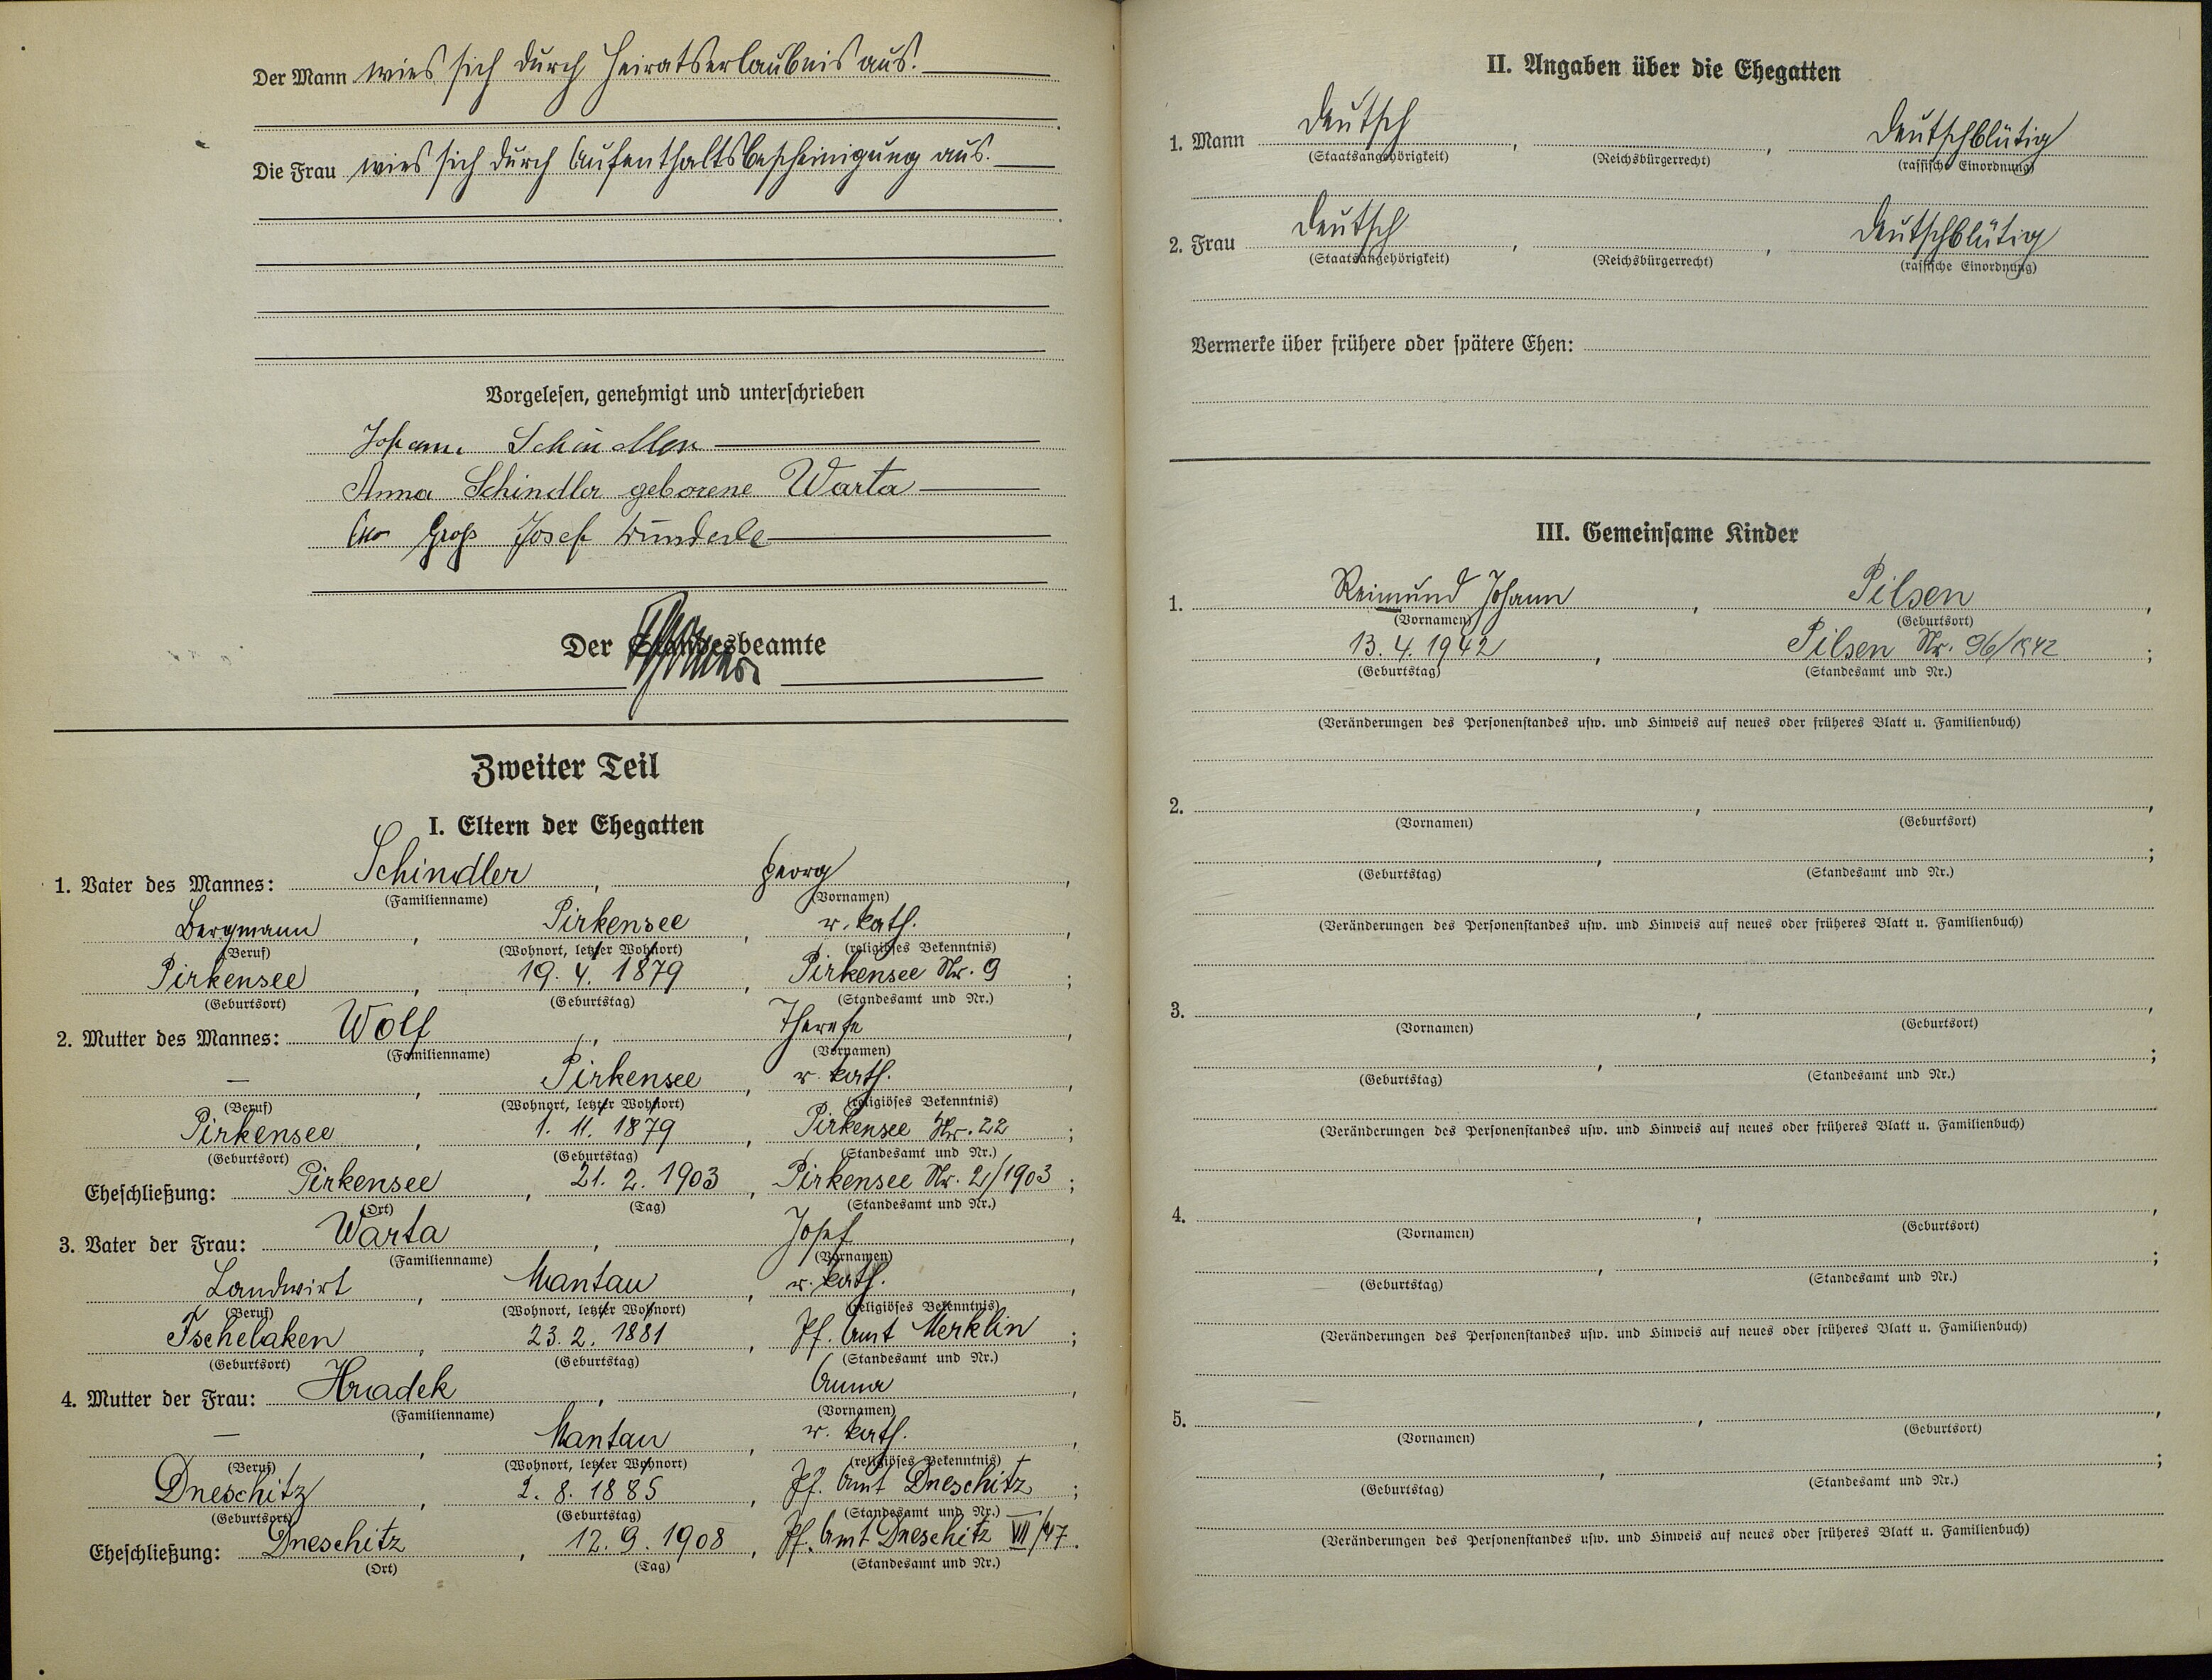 Der Mann wies sich durch Heiratserlaubnis aus.
Die Frau wies sich durch Aufenthaltsbescheinigung aus.
Vorgelesen, genehmigt und unterschrieben
Johann Schindler
Anna Schindler geborene Warta
Groß Josef Wunderle
Der Standesbeamte
Zweiter Teil
I. Eltern der Ehegatten
1. Vater des Mannes: Schindler, Georg,
(Familienname) (Vornamen)
Bergmann, Pirkensee, r. kath.,
(Beruf) (Wohnort, letzter Wohnort) (religiöses Bekenntnis)
Pirkensee, 19. 4. 1879, Pirkensee Nr. 9;
(Geburtsort) (Geburtstag) (Standesamt und Nr.)
2. Mutter des Mannes: Wolf, Therese,
(Familienname) (Vornamen)
—, Pirkensee, r. kath.,
(Beruf) (Wohnort, letzter Wohnort) (religiöses Bekenntnis)
Pirkensee, 1. 11. 1879, Pirkensee Nr. 22;
(Geburtsort) (Geburtstag) (Standesamt und Nr.)
Eheschließung: Pirkensee, 21. 2. 1903, Pirkensee Nr. 2/1903;
(Ort) (Tag) (Standesamt und Nr.)
3. Vater der Frau: Warta, Josef,
(Familienname) (Vornamen)
Landwirt, Mantau, r. kath.,
(Beruf) (Wohnort, letzter Wohnort) (religiöses Bekenntnis)
Tschelaken, 23. 2. 1881, Pf. Amt Merklin;
(Geburtsort) (Geburtstag) (Standesamt und Nr.)
4. Mutter der Frau: Hradek, Anna,
(Familienname) (Vornamen)
—, Mantau, r. kath.,
(Beruf) (Wohnort, letzter Wohnort) (religiöses Bekenntnis)
Dneschitz, 2. 8. 1885, Pf. Amt Dneschitz;
(Geburtsort) (Geburtstag) (Standesamt und Nr.)
Eheschließung: Dneschitz, 12. 9. 1908, Pf. Amt Dneschitz VII/47.
(Ort) (Tag) (Standesamt und Nr.)
II. Angaben über die Ehegatten
1. Mann deutsch, , deutschblütig
(Staatsangehörigkeit) (Reichsbürgerrecht) (rassische Einordnung)
2. Frau deutsch, , deutschblütig
(Staatsangehörigkeit) (Reichsbürgerrecht) (rassische Einordnung)
Vermerke über frühere oder spätere Ehen:
III. Gemeinsame Kinder
1. Reimund Johann, Pilsen,
(Vornamen) (Geburtsort)
13. 4. 1942, Pilsen Nr. 96/1942;
(Geburtstag) (Standesamt und Nr.)
(Veränderungen des Personenstandes usw. und Hinweis auf neues oder früheres Blatt u. Familienbuch)
2. , ,
(Vornamen) (Geburtsort)
, ;
(Geburtstag) (Standesamt und Nr.)
(Veränderungen des Personenstandes usw. und Hinweis auf neues oder früheres Blatt u. Familienbuch)
3. , ,
(Vornamen) (Geburtsort)
, ;
(Geburtstag) (Standesamt und Nr.)
(Veränderungen des Personenstandes usw. und Hinweis auf neues oder früheres Blatt u. Familienbuch)
4. , ,
(Vornamen) (Geburtsort)
, ;
(Geburtstag) (Standesamt und Nr.)
(Veränderungen des Personenstandes usw. und Hinweis auf neues oder früheres Blatt u. Familienbuch)
5. , ,
(Vornamen) (Geburtsort)
, ;
(Geburtstag) (Standesamt und Nr.)
(Veränderungen des Personenstandes usw. und Hinweis auf neues oder früheres Blatt u. Familienbuch)